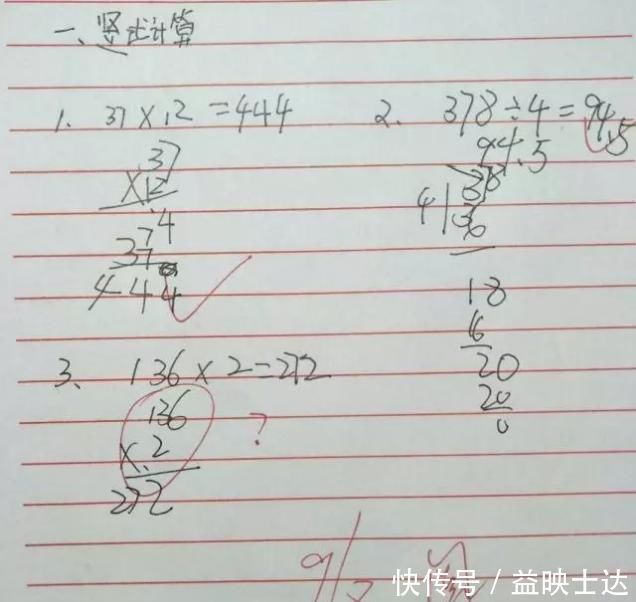 一、竖式计算
1. 37×12=444
37
×12
74
37
444
2. 378÷4=94.5
94.5
4 378
36
18
16
20
20
0
3、136×2=272
136
×2
272
?
快传号／益映士达